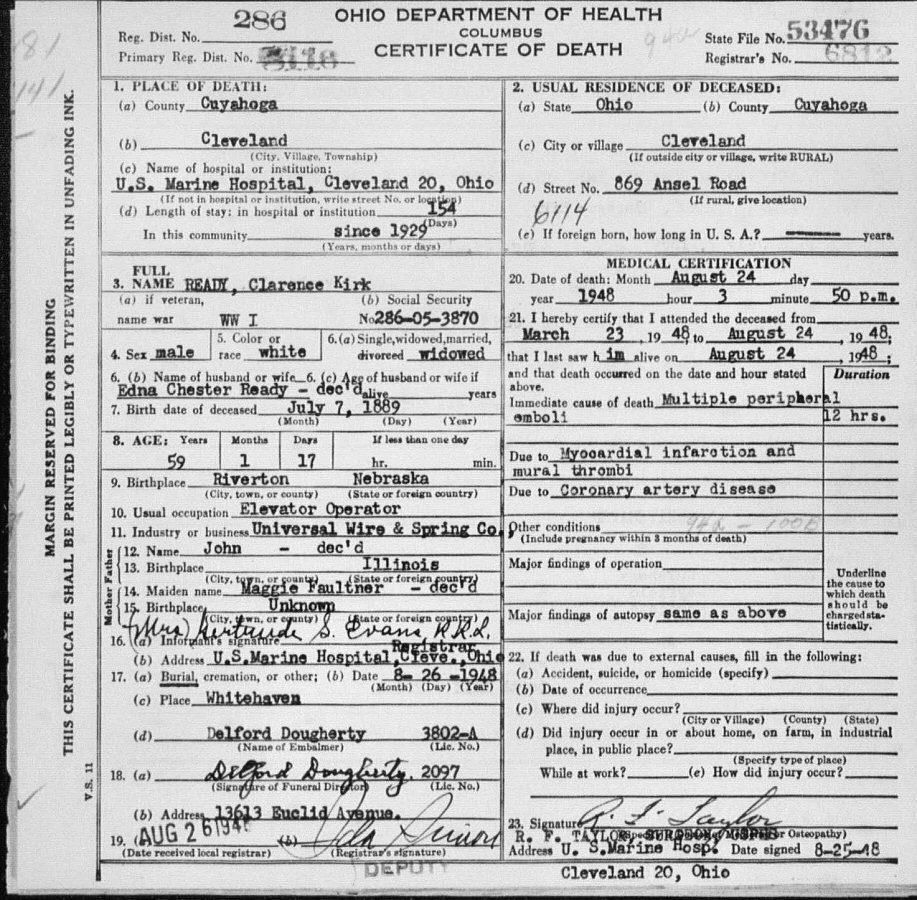 OHIO DEPARTMENT OF HEALTH
COLUMBUS
CERTIFICATE OF DEATH
Reg. Dist. No. 286
Primary Reg. Dist. No.
State File No. 53476
Registrar's No. 6812
MARGIN RESERVED FOR BINDING
THIS CERTIFICATE SHALL BE PRINTED LEGIBLY OR TYPEWRITTEN IN UNFADING INK.
V.S. 11
1. PLACE OF DEATH:
(a) County Cuyahoga
(b) Cleveland
(City, Village, Township)
(c) Name of hospital or institution:
U.S. Marine Hospital, Cleveland 20, Ohio
(If not in hospital or institution, write street No. or location)
(d) Length of stay: in hospital or institution 154
(Days)
In this community since 1929
(Years, months or days)
2. USUAL RESIDENCE OF DECEASED:
(a) State Ohio (b) County Cuyahoga
(c) City or village Cleveland
(If outside city or village, write RURAL)
(d) Street No. 869 Ansel Road
(If rural, give location)
6114
(e) If foreign born, how long in U. S. A.? years.
FULL
3. NAME READY, Clarence Kirk
(a) if veteran, (b) Social Security
name war WW I No 286-05-3870
4. Sex male 5. Color or race white 6. (a) Single, widowed, married, divorced widowed
6. (b) Name of husband or wife 6. (c) Age of husband or wife if
Edna Chester Ready - dec'd alive years
7. Birth date of deceased July 7, 1889
(Month) (Day) (Year)
8. AGE: Years Months Days If less than one day
59 1 17 hr. min.
9. Birthplace Riverton Nebraska
(City, town, or county) (State or foreign country)
10. Usual occupation Elevator Operator
11. Industry or business Universal Wire & Spring Co.
Father
12. Name John - dec'd
13. Birthplace Illinois
(City, town, or county) (State or foreign country)
Mother
14. Maiden name Maggie Faultner - dec'd
15. Birthplace Unknown
(City, town, or county) (State or foreign country)
(Mrs) Gertrude S. Evans, R.R.L.
16. (a) Informant's signature Registrar
(b) Address U.S.Marine Hospital, Cleve., Ohio
17. (a) Burial, cremation, or other; (b) Date 8- 26 -1948
(Month) (Day) (Year)
(c) Place Whitehaven
(d) Delford Dougherty 3802-A
(Name of Embalmer) (Lic. No.)
18. (a) Delford Dougherty. 2097
(Signature of Funeral Director) (Lic. No.)
(b) Address 13613 Euclid Avenue.
19. (a) AUG 26 1948 (b)
(Date received local registrar) (Registrar's signature)
DEPUTY
MEDICAL CERTIFICATION
20. Date of death: Month August 24 day
year 1948 hour 3 minute 50 p.m.
21. I hereby certify that I attended the deceased from
March 23, 1948 to August 24, 1948;
that I last saw him alive on August 24, 1948;
and that death occurred on the date and hour stated above.
Duration
Immediate cause of death Multiple peripheral
emboli 12 hrs.
Due to Myocardial infarction and
mural thrombi
Due to Coronary artery disease
Other conditions
(Include pregnancy within 3 months of death)
Major findings of operation
Underline the cause to which death should be charged statistically.
Major findings of autopsy same as above
22. If death was due to external causes, fill in the following:
(a) Accident, suicide, or homicide (specify)
(b) Date of occurrence
(c) Where did injury occur?
(City or Village) (County) (State)
(d) Did injury occur in or about home, on farm, in industrial
place, in public place?
(Specify type of place)
While at work? (e) How did injury occur?
23. Signature R. F. Taylor
R. F. TAYLOR, SURGEON, USPHS
Address U. S.Marine Hosp. Date signed 8-25-48
Cleveland 20, Ohio